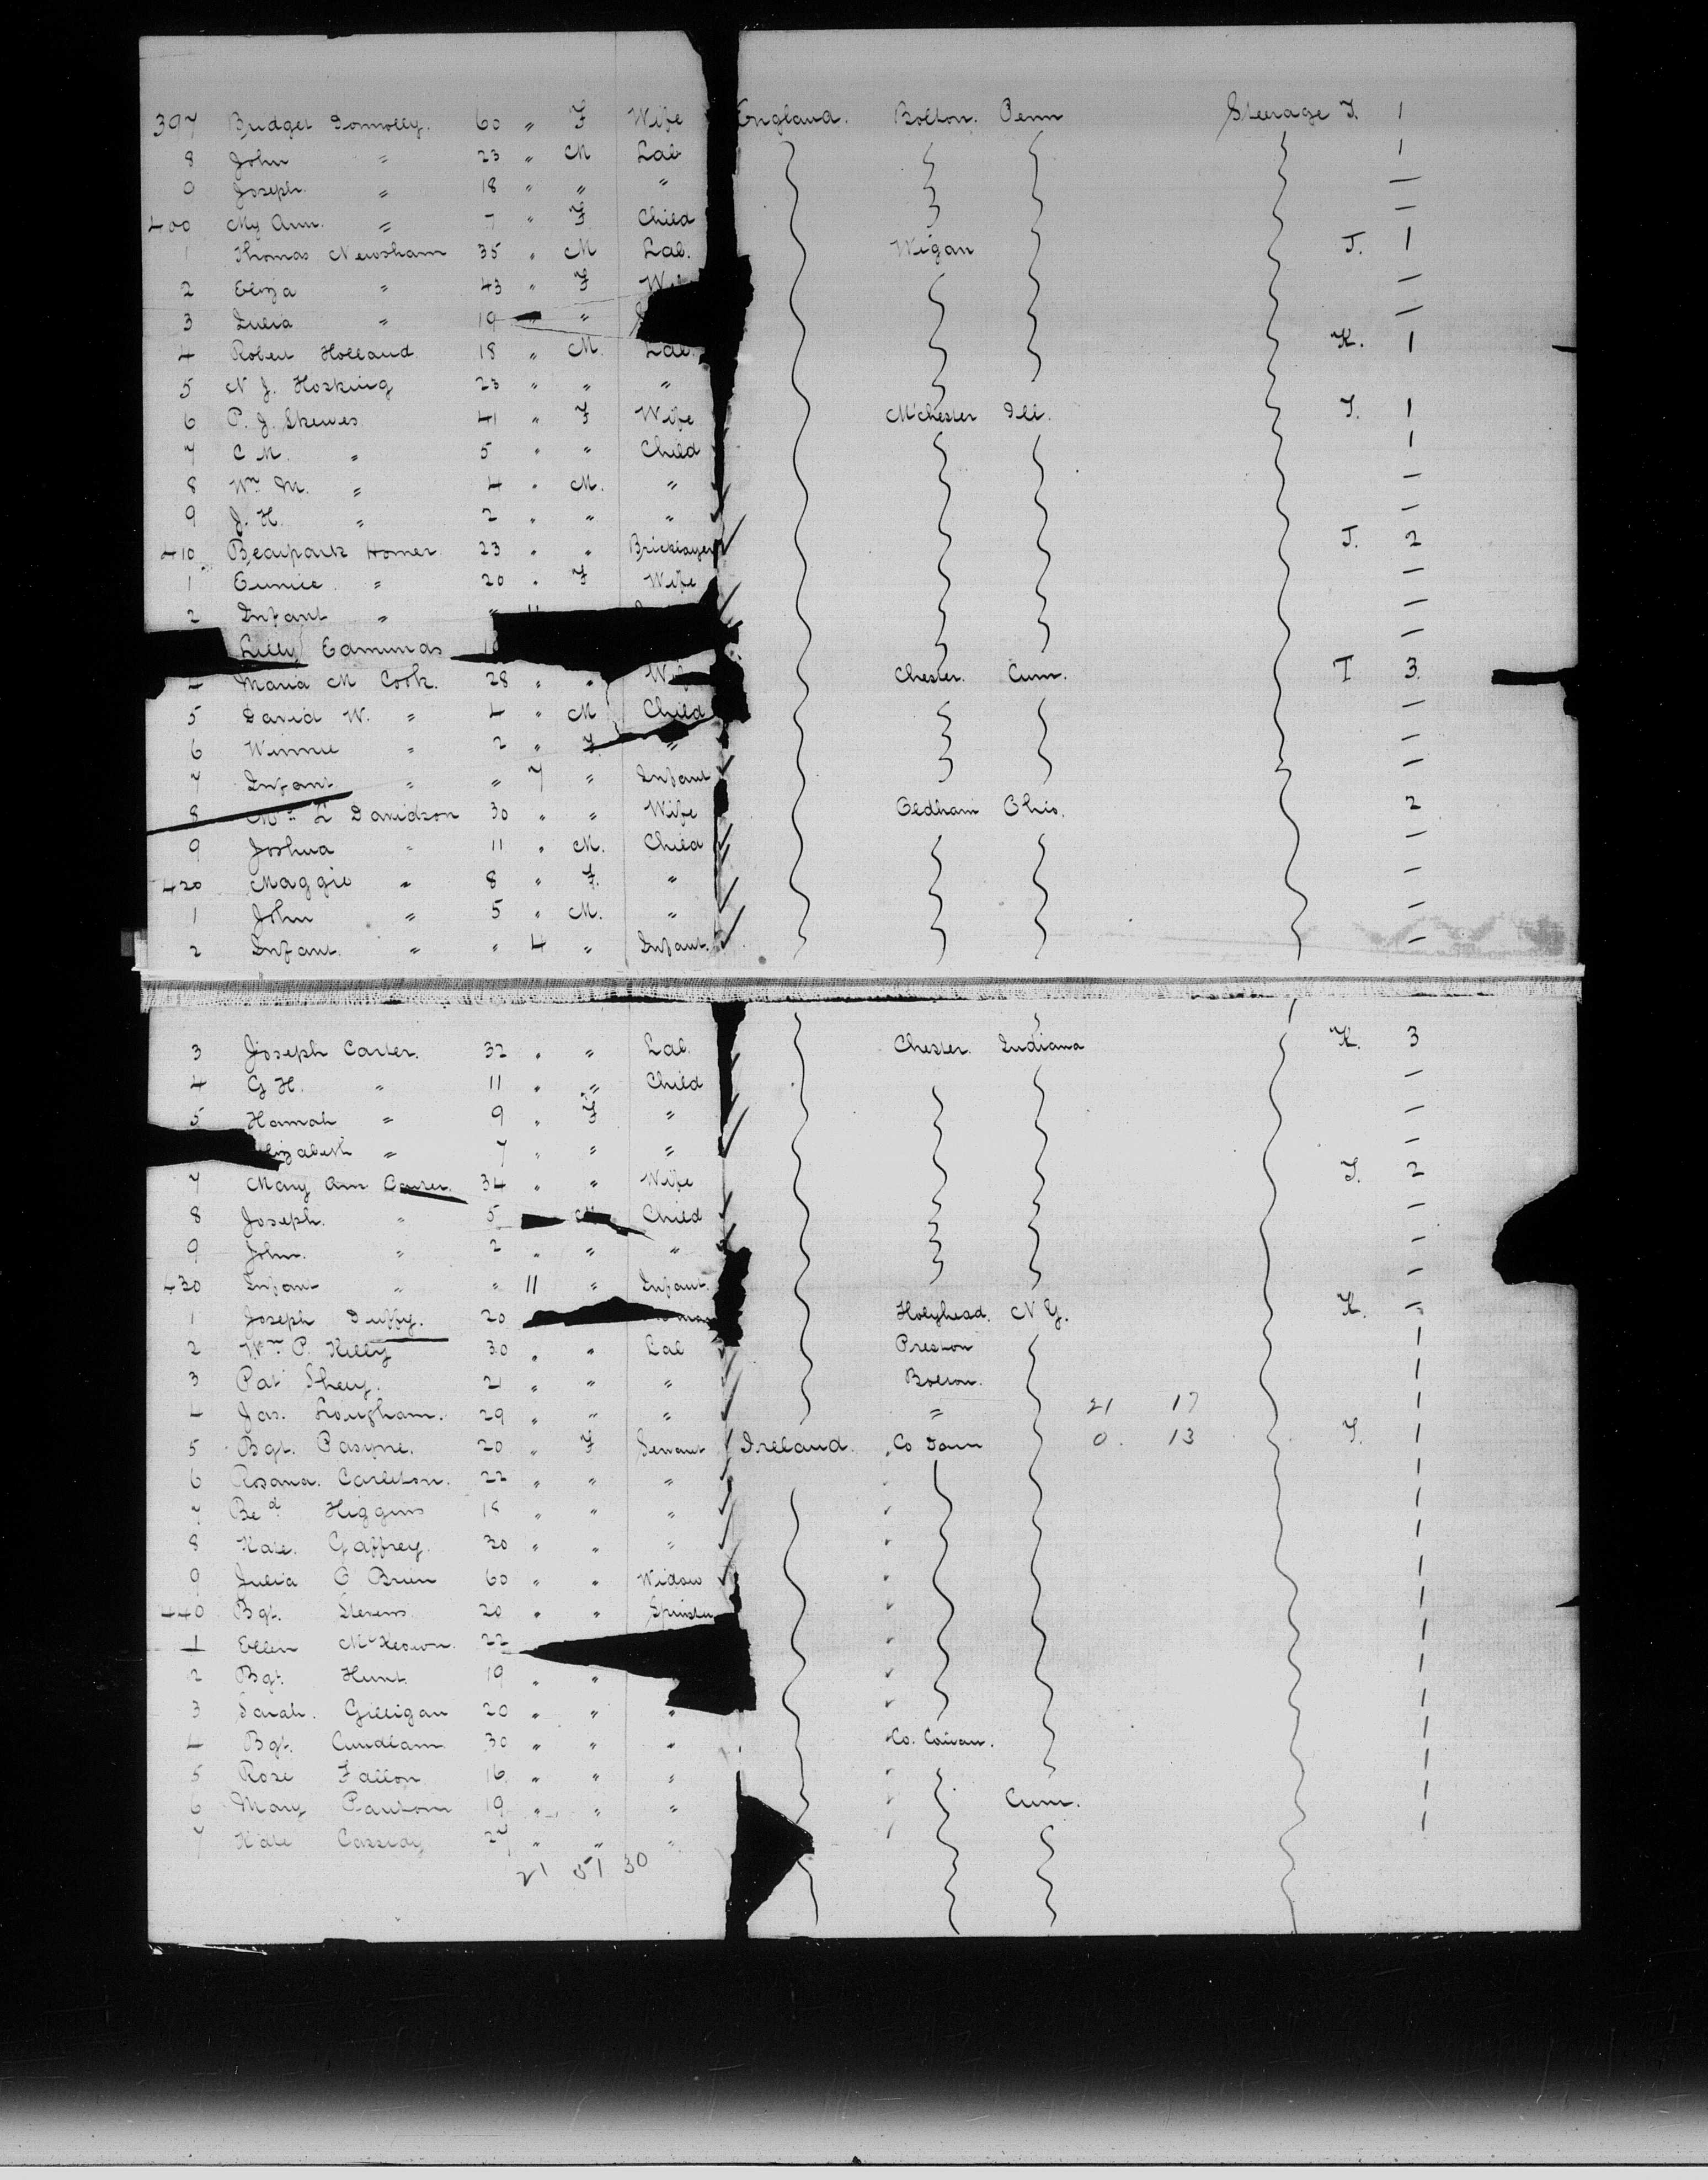 397 Bridget Donnolly. 60 " F Wife England. Bolton. Penn Steerage T. 1
8 John " 23 " M Lab 1
9 Joseph. " 18 " " " —
400 My Ann. " 7 " F Child —
1 Thomas Newsham 35 " M Lab. Wigan T. 1
2 Eliza " 43 " F —
3 Julia " 19 " —
4 Robert Holland. 18 " M. Lab. K. 1
5 N J. Hosking 23 " " "
6 P. J. Skewes 41 " F Wife M'chester Ill. T. 1
7 C M. " 5 " " Child 1
8 Wm M. " 4 " M. " —
9 J. H. " 2 " " " —
410 Beaupark Homer 23 " " Bricklayer T. 2
1 Eunice " 20 " F Wife —
2 Infant " " 11 —
Lilly Edmunds —
4 Maria M Cook. 28 " " Chester. Cum. T 3.
5 David W. " 4 " M Child —
6 Winnie " 2 " F. " —
7 Infant " " 7 " Infant —
8 Mrs L Davidson 30 " " Wife Oldham Ohio. 2
9 Joshua " 11 " M. Child —
420 Maggie " 8 " F. " —
1 John " 5 " M. " —
2 Infant. " " 4 " Infant. —
3 Joseph Carter. 32 " " Lab. Chester. Indiana K. 3
4 G H. " 11 " " Child —
5 Hannah " 9 " F " —
" 7 " " " —
7 Mary Ann Carter. 34 " " Wife T. 2
8 Joseph. " 5 Child —
9 John. " 2 " " " —
430 Infant " " 11 " Infant. —
1 Joseph Duffy. 20 Holyhead. N Y. K. —
2 Wm P. Kelly 30 " " Lab Preston 1
3 Pat 21 " " " Bolton. 1
4 Jas. 29 " " " " 21 17 1
5 Bgt. 20 " F Servant Ireland. Co Down 0. 13 T. 1
6 Rosana. Carleton. 22 " " " 1
7 Bed Higgins 18 " " " 1
8 Kate. Gaffrey. 30 " " " 1
9 Julia O Brien 60 " " Widow 1
440 Bgt. Stevens 20 " " Spinster 1
1 Ellen McKeown. 22 1
2 Bgt. Hunt 19 " " 1
3 Sarah. Gilligan 20 " " " 1
4 Bgt. 30 " " " Co. Cavan. 1
5 Rose Fallon 16 " " " 1
6 Mary 19 " " " Cum. 1
7 Kate Cassidy 27 " " " 1
21 51 30